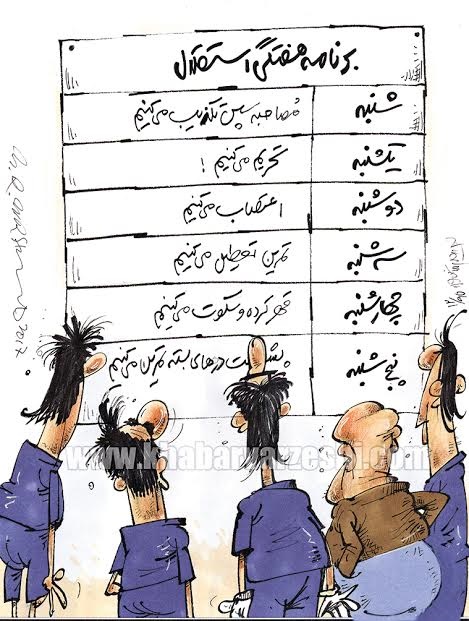 برنامه هفتگی استقلال
شنبه مصاحبه سپس تکذیب می‌کنیم
یکشنبه تحریم می‌کنیم !
دوشنبه اعتصاب می‌کنیم
سه‌شنبه تمرین تعطیل می‌کنیم
چهارشنبه قهر کرده و سکوت می‌کنیم
پنج‌شنبه پشت درهای بسته تمرین می‌کنیم
www.khabarvarzeshi.com
2017